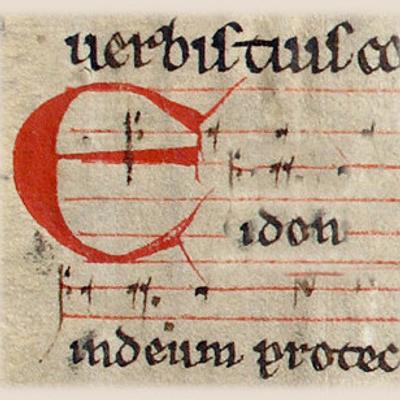 uerbiſ tuiſ co
E idon
indeum protec